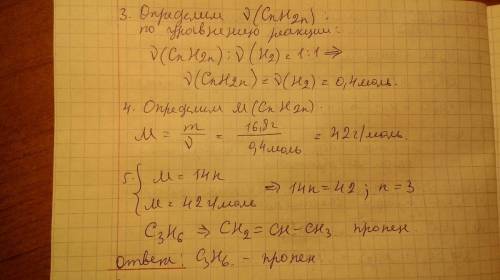 3. Определим ν(CnH2n).
по уравнению реакции:
ν(CnH2n) : ν(H2) = 1:1 ⇒
ν(CnH2n) = ν(H2) = 0,4моль.
4. Определим M(CnH2n).
M = m/ν = 16,8г/0,4моль = 42г/моль.
5. { M = 14n
M = 42г/моль ⇒ 14n = 42 ; n = 3
C3H6 ⇒ CH2 = CH – CH3 пропен
Ответ: C3H6 – пропен